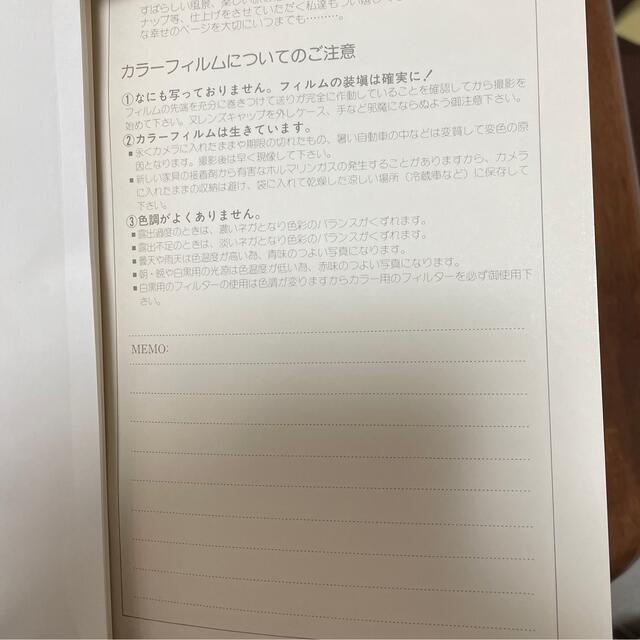 すばらしい風景、楽しい
ナップ等、仕上げをさせていただく私達も
な幸せのページを大切にいつまでも………。
カラーフィルムについてのご注意
①なにも写っておりません。フィルムの装塡は確実に！
フィルムの先端を充分に巻きつけて送りが完全に作動していることを確認してから撮影を
始めて下さい。又レンズキャップを外しケース、手など邪魔にならぬよう御注意下さい。
②カラーフィルムは生きています。
■永くカメラに入れたままや期限の切れたもの、暑い自動車の中などは変質して変色の原
因となります。撮影後は早く現像して下さい。
■新しい家具の接着剤から有害なホルマリンガスの発生することがありますから、カメラ
に入れたままの収納は避け、袋に入れて乾燥した涼しい場所（冷蔵車など）に保存して
下さい。
③色調がよくありません。
■露出過度のときは、濃いネガとなり色彩のバランスがくずれます。
■露出不足のときは、淡いネガとなり色彩のバランスがくずれます。
■曇天や雨天は色温度が高い為、青味のつよい写真になります。
■朝・晩や白黒用の光源は色温度が低い為、赤味のつよい写真になります。
■白黒用のフィルターの使用は色調が変りますからカラー用のフィルターを必ず御使用下
さい。
MEMO: